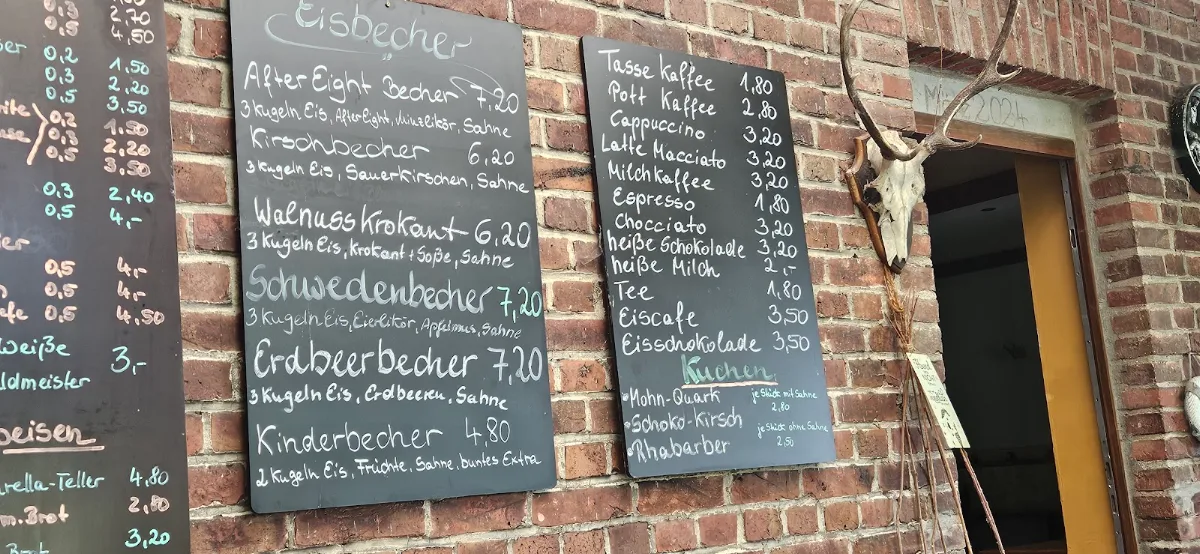 2,70
4,50
0,2 1,50
0,3 2,20
0,5 3,50
0,2 1,50
0,3 2,20
0,5 3,50
0,3 2,40
0,5 4,-
0,5 4,-
0,5 4,-
0,5 4,50
3,-
4,80
2,80
3,20
Eisbecher
After Eight Becher 7,20
3 Kugeln Eis, After Eight, Minzlikör, Sahne
Kirschbecher 6,20
3 Kugeln Eis, Sauerkirschen, Sahne
Walnuss Krokant 6,20
3 Kugeln Eis, Krokant + Soße, Sahne
Schwedenbecher 7,20
3 Kugeln Eis, Eierlikör, Apfelmus, Sahne
Erdbeerbecher 7,20
3 Kugeln Eis, Erdbeeren, Sahne
Kinderbecher 4,80
2 Kugeln Eis, Früchte, Sahne, buntes Extra
Tasse Kaffee 1,80
Pott Kaffee 2,80
Cappuccino 3,20
Latte Macciato 3,20
Milchkaffee 3,20
Espresso 1,80
Chocciato 3,20
heiße Schokolade 3,20
heiße Milch 2,-
Tee 1,80
Eiscafe 3,50
Eisschokolade 3,50
Kuchen
•Mohn-Quark je Stück mit Sahne
2,80
•Schoko-Kirsch je Stück ohne Sahne
•Rhabarber 2,50
2024